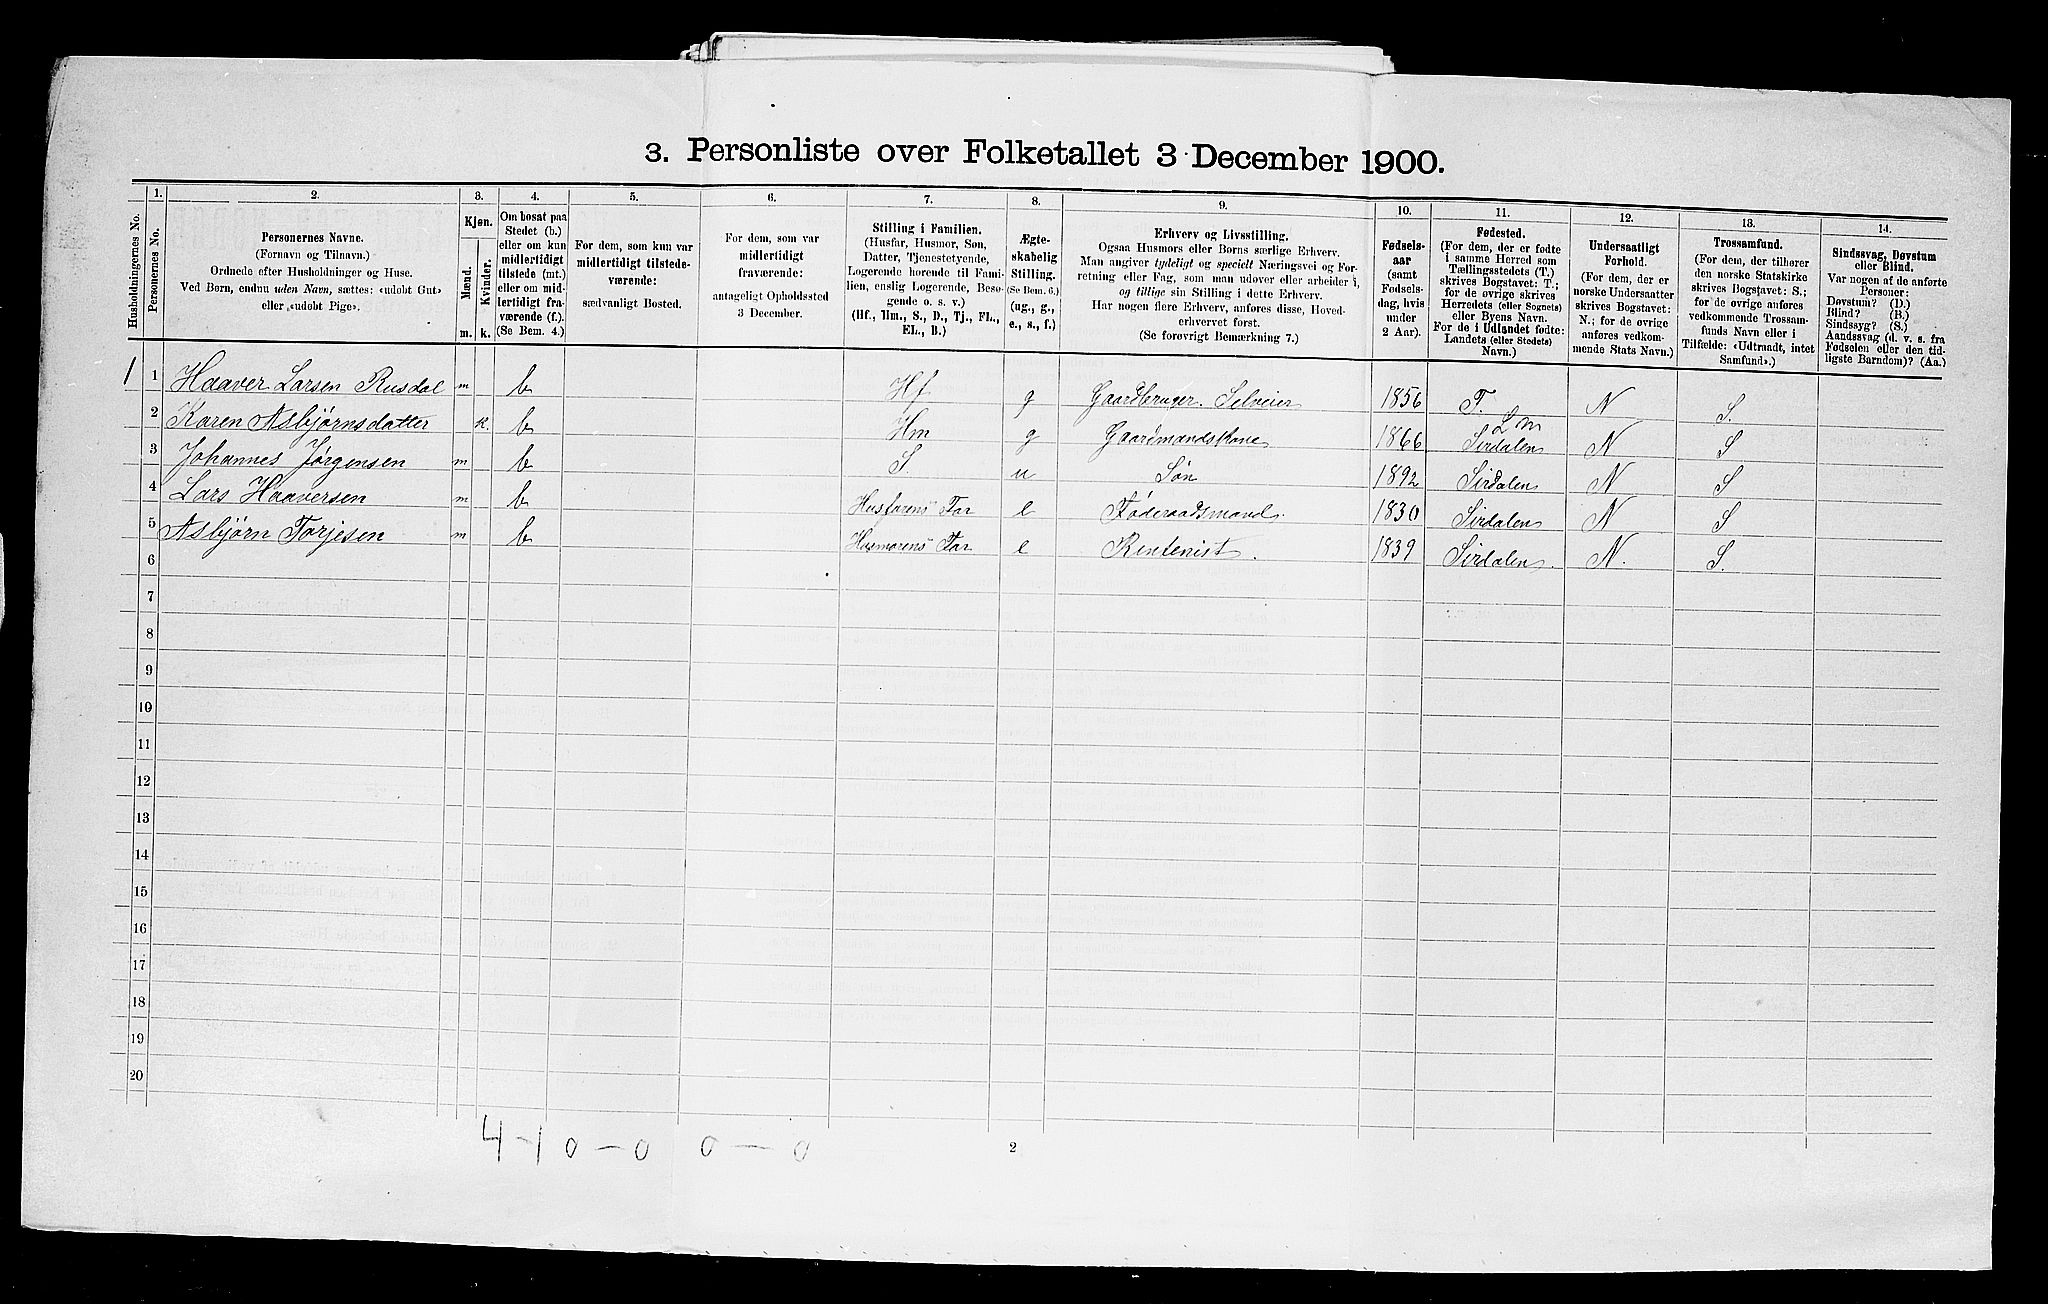 3. Personliste over Folketallet 3 December 1900.
1. 2. 3. 4. 5. 6. 7. 8. 9. 10. 11. 12. 13. 14.
Husholdningernes No.
Personernes No.
Personernes Navne.
(Fornavn og Tilnavn.)
Ordnede efter Husholdninger og Huse.
Ved Børn, endnu uden Navn, sættes: «udøbt Gut»
eller «udøbt Pige».
Kjøn.
Mænd.
Kvinder.
m. k.
Om bosat paa
Stedet (b.)
eller om kun
midlertidigt
tilstede (mt.)
eller om mid-
lertidigt fra-
værende (f.).
(Se Bem. 4.)
For dem, som kun var
midlertidigt tilstede-
værende:
sædvanligt Bosted.
For dem, som var
midlertidigt
fraværende:
antageligt Opholdssted
3 December.
Stilling i Familien.
(Husfar, Husmor, Søn,
Datter, Tjenestetyende,
Logerende hørende til Fami-
lien, enslig Logerende, Besø-
gende o. s. v.)
(Hf., Hm., S., D., Tj., FL.,
EL., B.)
Ægte-
skabelig
Stilling.
(Se Bem. 6.)
(ug., g.,
e., s., f.)
Erhverv og Livsstilling.
Ogsaa Husmors eller Børns særlige Erhverv.
Man angiver tydeligt og specielt Næringsvei og For-
retning eller Fag, som man udøver eller arbeider i,
og tillige sin Stilling i dette Erhverv.
Har nogen flere Erhverv, anføres disse, Hoved-
erhvervet først.
(Se forøvrigt Bemærkning 7.)
Fødsels-
aar
(samt
Fødsels-
dag, hvis
under
2 Aar).
Fødested.
(For dem, der er fødte
i samme Herred som
Tællingsstedets (T.)
skrives Bogstavet: T.;
for de øvrige skrives
Herredets (eller Sognets)
eller Byens Navn.
For de i Udlandet fødte:
Landets (eller Stedets)
Navn.)
Undersaatligt
Forhold.
(For dem, der er
norske Undersaatter
skrives Bogstavet:
N.; for de øvrige
anføres vedkom-
mende Stats Navn.)
Trossamfund.
(For dem, der tilhører
den norske Statskirke
skrives Bogstavet: S.;
for de øvrige anføres
vedkommende Trossam-
funds Navn eller i
Tilfælde: «Udtraadt, intet
Samfund».)
Sindssvag, Døvstum
eller Blind.
Var nogen af de anførte
Personer:
Døvstum? (D.)
Blind? (B.)
Sindssyg? (S.)
Aandssvag (d. v. s. fra
Fødselen eller den tid-
ligste Barndom)? (Aa.)
1 1 Haaver Larsen Rusdal m b Hf g Gaardbruger. Selveier 1856 T. N S.
2 Karen Asbjørnsdatter k. b Hm g Gaardmandskone 1866 Sirdalen L m N S
3 Johannes Jørgensen m b S. u Søn 1892 Sirdalen N S
4 Lars Haaversen m b Husfarens Far e Føderaadsmand. 1830 Sirdalen N S
5 Asbjørn Torjesen m b Husmorens Far e Rentenist. 1839 Sirdalen. N. S.
6
7
8
9
10
11
12
13
14
15
16
17
18
19
20
4-10-0 0-0
2